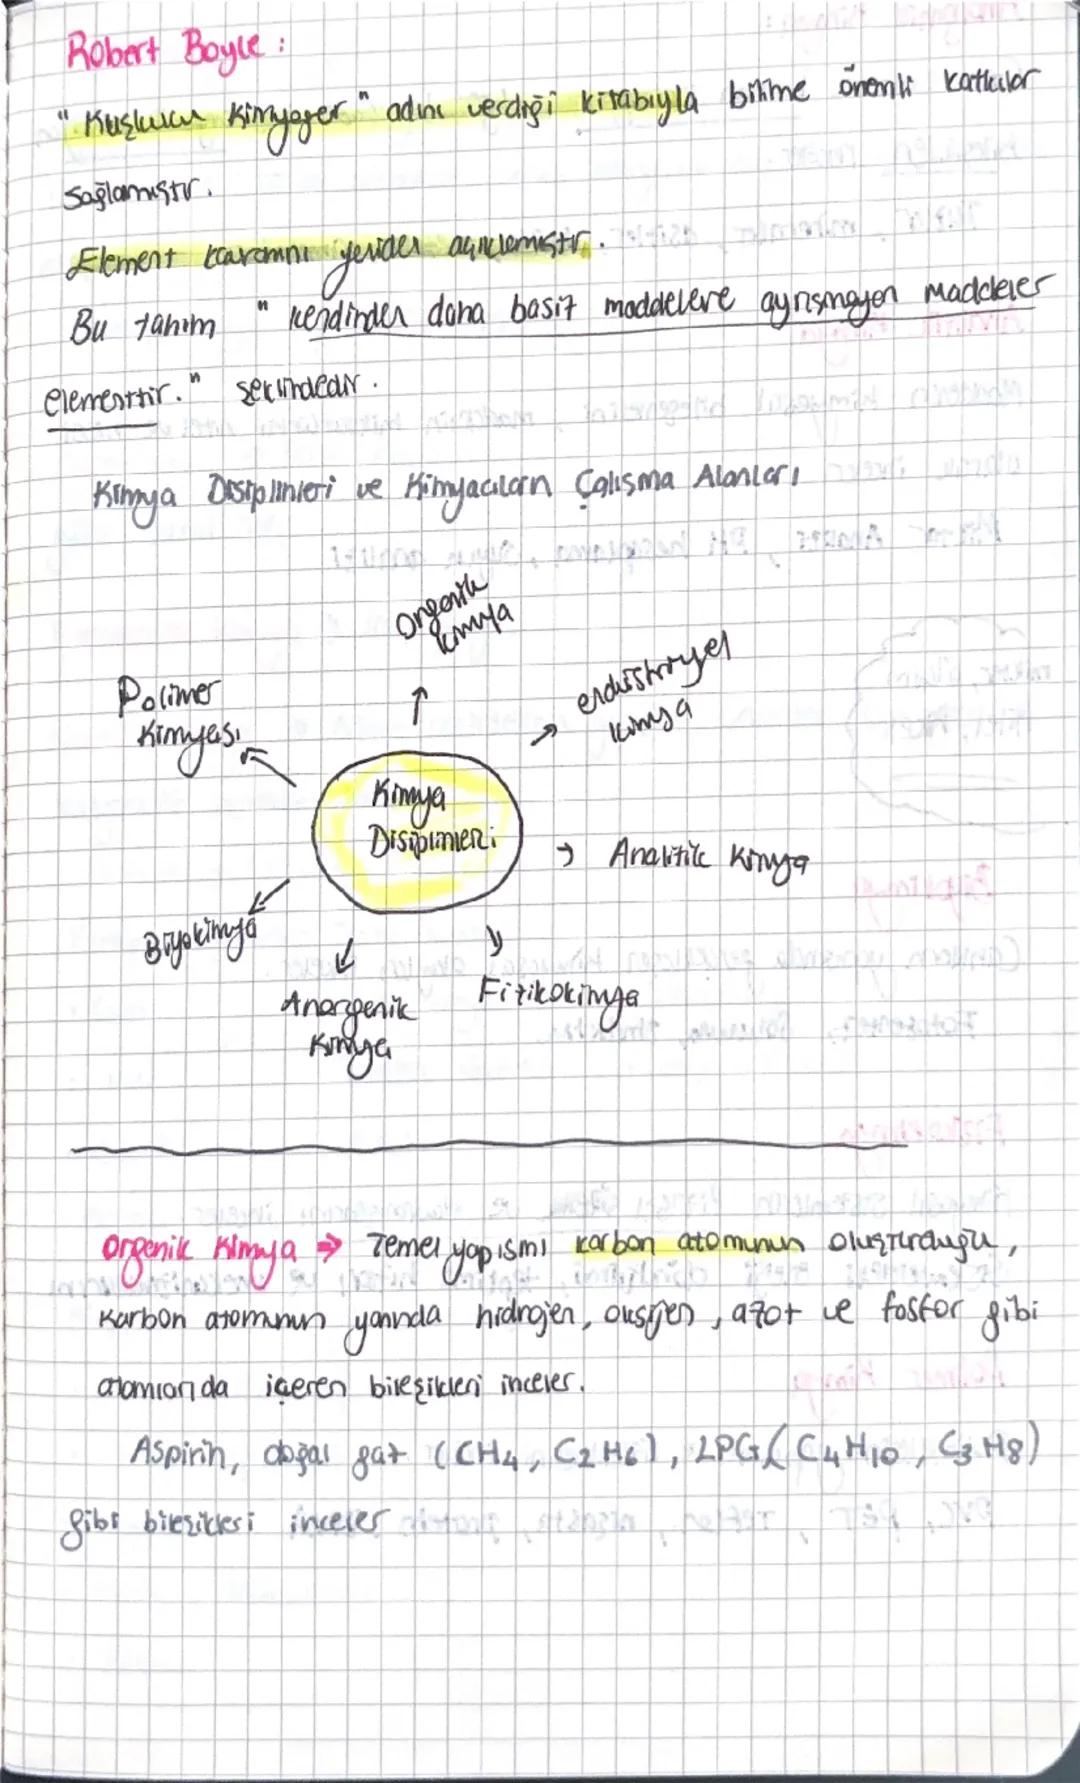 Robert Boyle :
" Kuşkucu Kimyager " adını verdiği kitabıyla bilime önemli katkılar
sağlamıştır.
Element kavramını yeniden açıklamıştır.
Bu tanım " kendinden daha basit maddelere ayrışmayan maddeler
elementtir. " şeklindedir.
Kimya Disiplinleri ve Kimyacıların Çalışma Alanları
Organik
kimya
endüstriyel
kimya
Polimer
Kimyası
Kimya
Disiplinleri
→ Analitik Kimya
Biyokimya
Anorganik
Kimya
Fizikokimya
Organik Kimya ⇒ Temel yapısını karbon atomunun oluşturduğu,
karbon atomunun yanında hidrojen, oksijen, azot ve fosfor gibi
atomları da içeren bileşikleri inceler.
Aspirin, doğal gaz (CH4, C2H6), LPG ( C4H10, C3H8)
gibi bileşikleri inceler